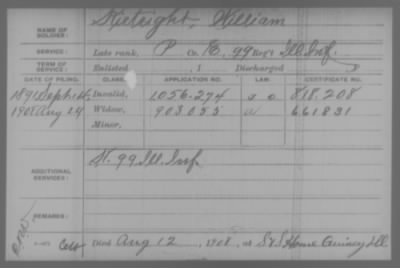 NAME OF SOLDIER: Kieteight, William
SERVICE: Late rank, P Co. K, 99 Reg't Ill. Inf.
TERM OF SERVICE: Enlisted , 1 Discharged
DATE OF FILING. CLASS. APPLICATION NO. LAW. CERTIFICATE NO.
1891 Sept Invalid, 1056.274 818.208
1908 Aug 24 Widow, 903055 661831
Minor,
ADDITIONAL SERVICES: 99 Ill. Inf.
REMARKS:
Died Aug 12, 1908, at S & S Home Quincy Ill.